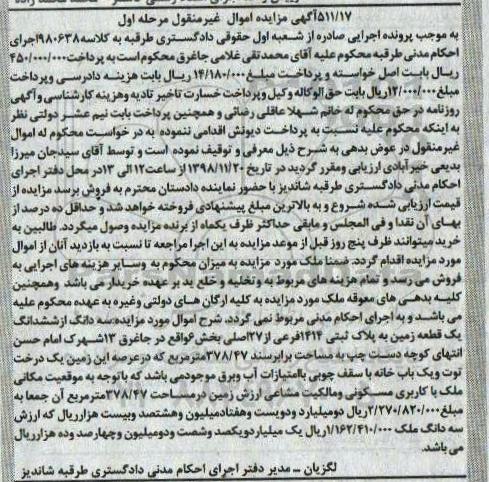 ۵۱۱/۱۷آگهی مزایده اموال غیرمنقول مرحله اول
به موجب پرونده اجرایی صادره از شعبه اول حقوقی دادگستری طرقبه به کلاسه۹۸۰۶۳۸اجرای
احکام مدنی طرقبه محکوم علیه آقای محمدتقی غلامی جاغرق محکوم است به پرداخت۴۵۰/۰۰۰/۰۰۰
ریال بابت اصل خواسته و پرداخت مبلغ۱۴/۱۸۰/۰۰۰ ریال بابت هزینه دادرسی وپرداخت
مبلغ۱۲/۰۰۰/۰۰۰ریال بابت حق الوکاله وکیل وپرداخت خسارت تاخیر تادیه وهزینه کارشناسی وآگهی
روزنامه در حق محکوم له خانم شهلا عاقلی رضائی و همچنین پرداخت بابت نیم عشر دولتی نظر
به اینکه محکوم علیه نسبت به پرداخت دیونش اقدامی ننموده به در خواست محکوم له اموال
غیرمنقول در عوض بدهی به شرح ذیل معرفی و توقیف نموده است و توسط آقای سیدجان میرزا
بدیعی خیرآبادی ارزیابی ومقرر گردید در تاریخ ۱۳۹۸/۱۱/۲۰ از ساعت۱۲ الی ۱۳در محل دفتر اجرای
احکام مدنی دادگستری طرقبه شاندیز با حضور نماینده دادستان محترم به فروش برسد مزایده از
قیمت ارزیابی شده شروع و به بالاترین مبلغ پیشنهادی فروخته خواهد شد و حداقل ده درصد از
بهای آن نقدا و فی المجلس و مابقی حداکثر ظرف یکماه از برنده مزایده وصول میگردد. طالبین به
خرید میتوانند ظرف پنج روز قبل از موعد مزایده به این اجرا مراجعه تا نسبت به بازدید آنان از اموال
مورد مزایده اقدام گردد. ضمنا ملک مورد مزایده به میزان محکوم به وسایر هزینه های اجرایی به
فروش می رسد و تمام هزینه های مربوط به و تخلیه و خلع ید بر عهده خریدار می باشد وهمچنین
کلیه بدهی های معوقه ملک مورد مزایده به کلیه ارگان های دولتی وغیره به عهده محکوم علیه
می باشد و به اجرای احکام مدنی مربوط نمی گردد. شرح اموال مورد مزایده سه دانگ ازششدانگ
یک قطعه زمین به پلاک ثبتی ۱۴۱۴فرعی از۲۷اصلی بخش۶واقع در جاغرق ۱۳شهرک امام حسن
انتهای کوچه دست چپ به مساحت برابرسند ۳۷۸/۴۷مترمربع که درعرصه این زمین یک درخت
توت ویک باب خانه با سقف چوبی باامتیازات آب وبرق موجودمی باشد که باتوجه به موقعیت مکانی
ملک با کاربری مسکونی ومالکیت مشاعی ارزش زمین درمساحت ۳۷۸/۴۷مترمربع آن جمعا به
مبلغ۲/۲۷۰/۸۲۰/۰۰۰ریال دومیلیارد ودویست وهفتادمیلیون وهشتصد وبیست هزارریال که ارزش
سه دانگ ملک ۱/۱۶۲/۴۱۰/۰۰۰ریال یک میلیاردویکصد وشصت ودومیلیون وچهارصد وده هزارریال
می باشد.
لگزیان ـ مدیر دفتر اجرای احکام مدنی دادگستری طرقبه شاندیز